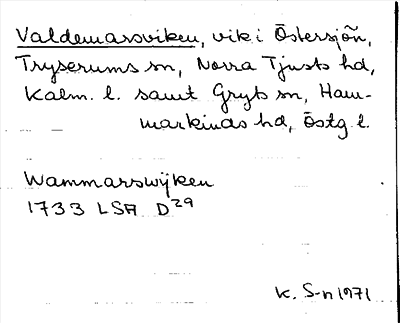 Valdemarsviken, vik i Östersjön,
Tryserums sn, Norra Tjusts hd,
Kalm. l. samt Gryts sn, Ham-
markinds hd, Östg l.
Wammarswijken
1733 LSA D29
K. S-n 1971